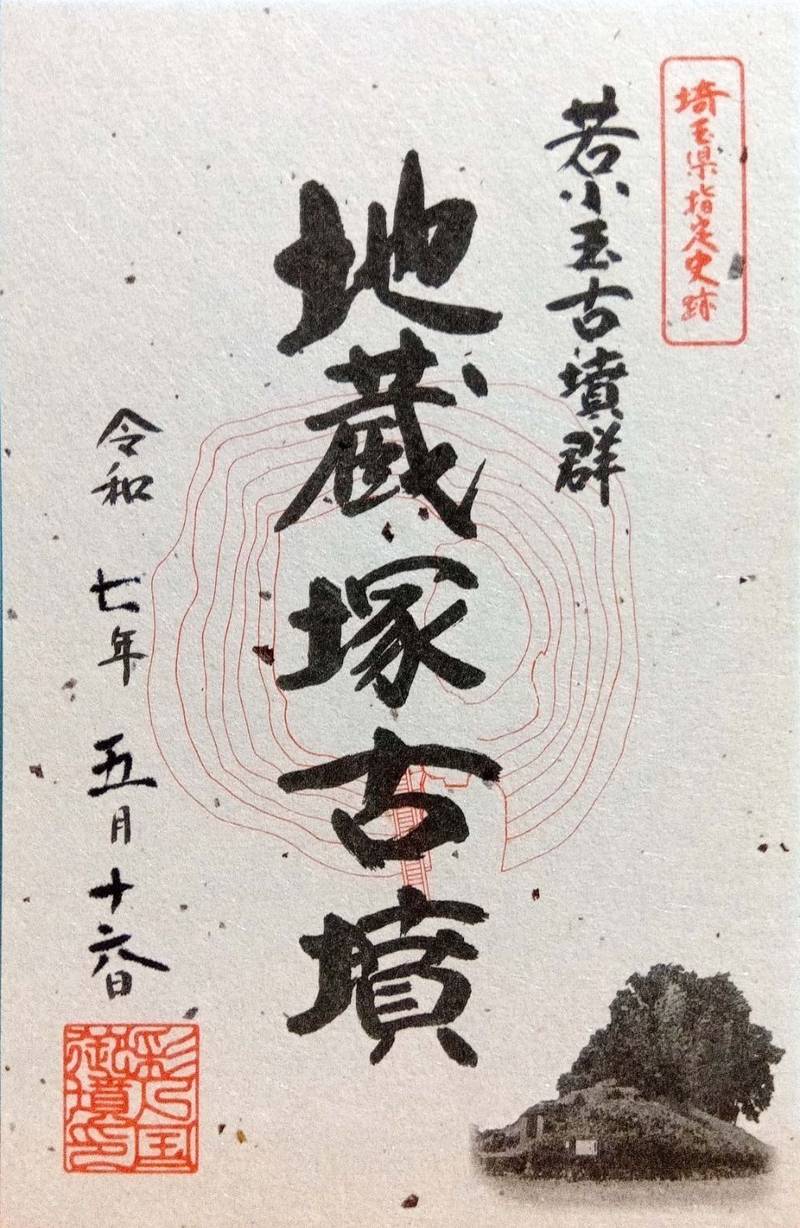 埼玉県指定史跡
若小玉古墳群
地蔵塚古墳
令和 七年 五月 十六日
彩の国
御墳印